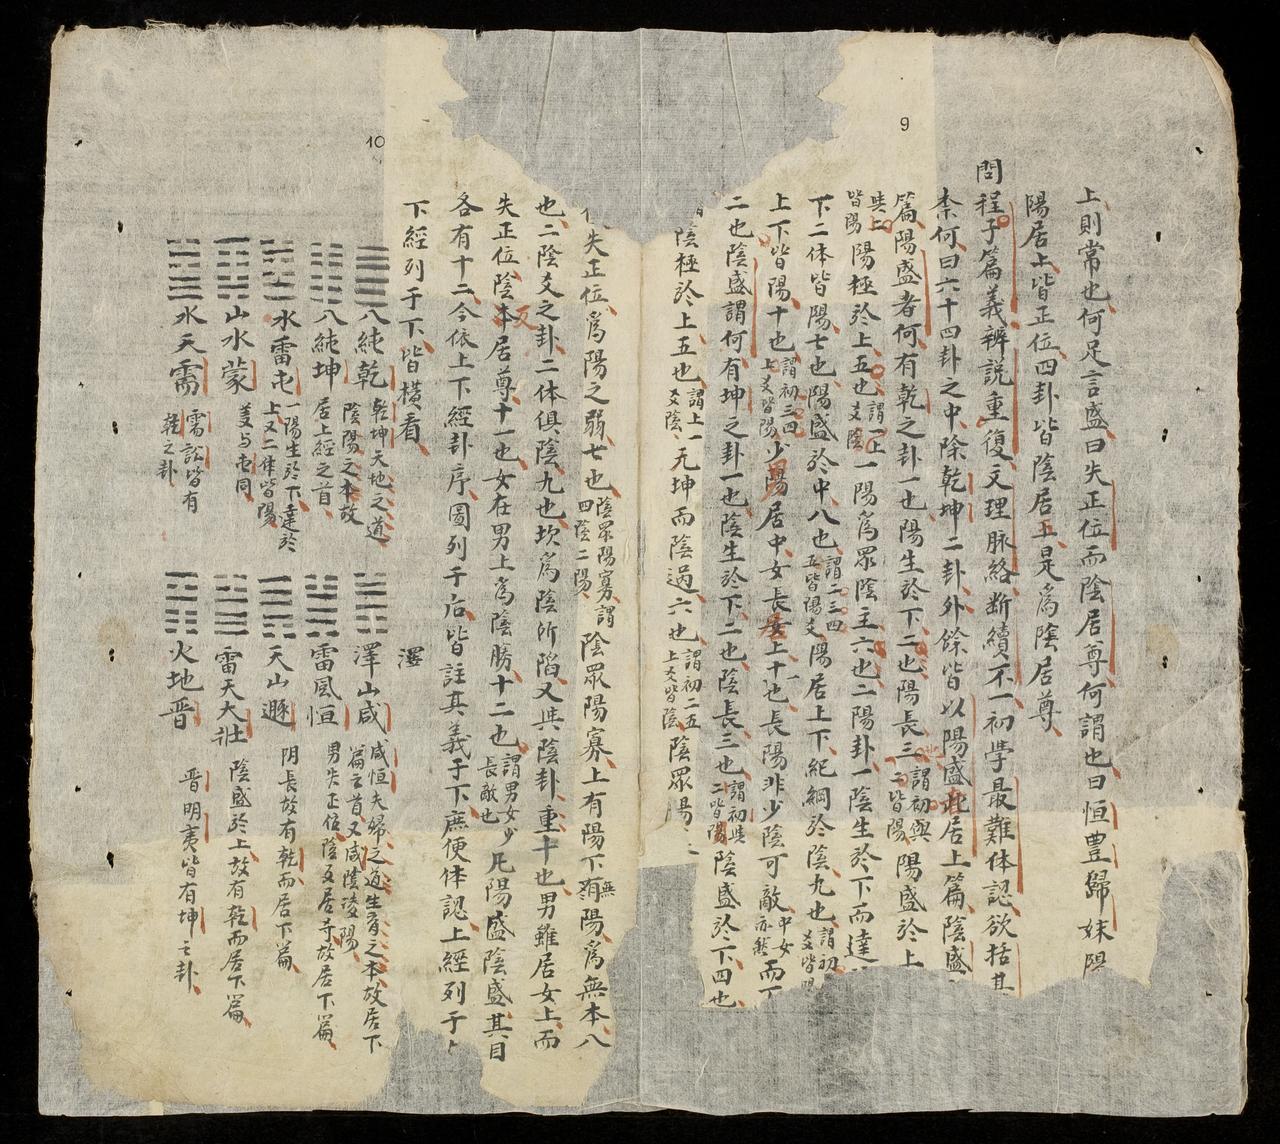 9
上則常也何足言盛曰失正位而陰居尊何謂也曰恒豊歸妹
陽居上皆正位四卦皆陰居五是爲陰居尊
問程子篇義辨說重復文理脉絡斷續不一初學最難体認欲括其
柰何曰六十四卦之中除乾坤二卦外餘皆以陽盛居上篇陰盛
篇陽盛者何有乾之卦一也陽生於下二也陽長三謂初與二皆陽陽盛於上
皆陽陽極於上五也謂一上爻陰一陽爲眾陰主六也二陽卦一陰生於下而達
下二体皆陽七也陽盛於中八也謂二三四五皆陽爻陽居上下紀綱於陰九也謂初爻皆陽
上下皆陽十也謂初三四上爻皆陽少陽居中女長女上十一也長陽非少陰可敵中女亦然而下
二也陰盛謂何有坤之卦一也陰生於下二也陰長三也謂初與二皆陽陰盛於下四也
陰極於上五也謂上一爻陰无坤而陰過六也謂初二五上爻皆陰陰眾陽
10
失正位爲陽之弱七也陰眾陽寡謂四陰二陽陰眾陽寡上有陽下無陽爲無本八
也二陰爻之卦二体俱陰九也坎爲陰所陷又與陰卦重十也男雖居女上而
失正位陰反居尊十一也女在男上爲陰勝十二也謂男女少長敵也凡陽盛陰盛其目
各有十二今依上下經卦序圖列于后皆註其義于下庶便体認上經列于
下經列于下皆橫看
八純乾 乾坤天地之道陰陽之本故居上經之首
八純坤
水雷屯 一陽生於下達於上又二体皆陽
山水蒙 義与屯同
水天需 需訟皆有乾之卦
澤山咸 咸恒夫婦之道生育之本故居下篇之首又咸陰凌陽
雷風恒 男失正位陰爻居尊故居下篇
天山遯 阴長故有乾而居下篇
雷天大壮 陰盛於上故有乾而居下篇
火地晋 晋明夷皆有坤之卦